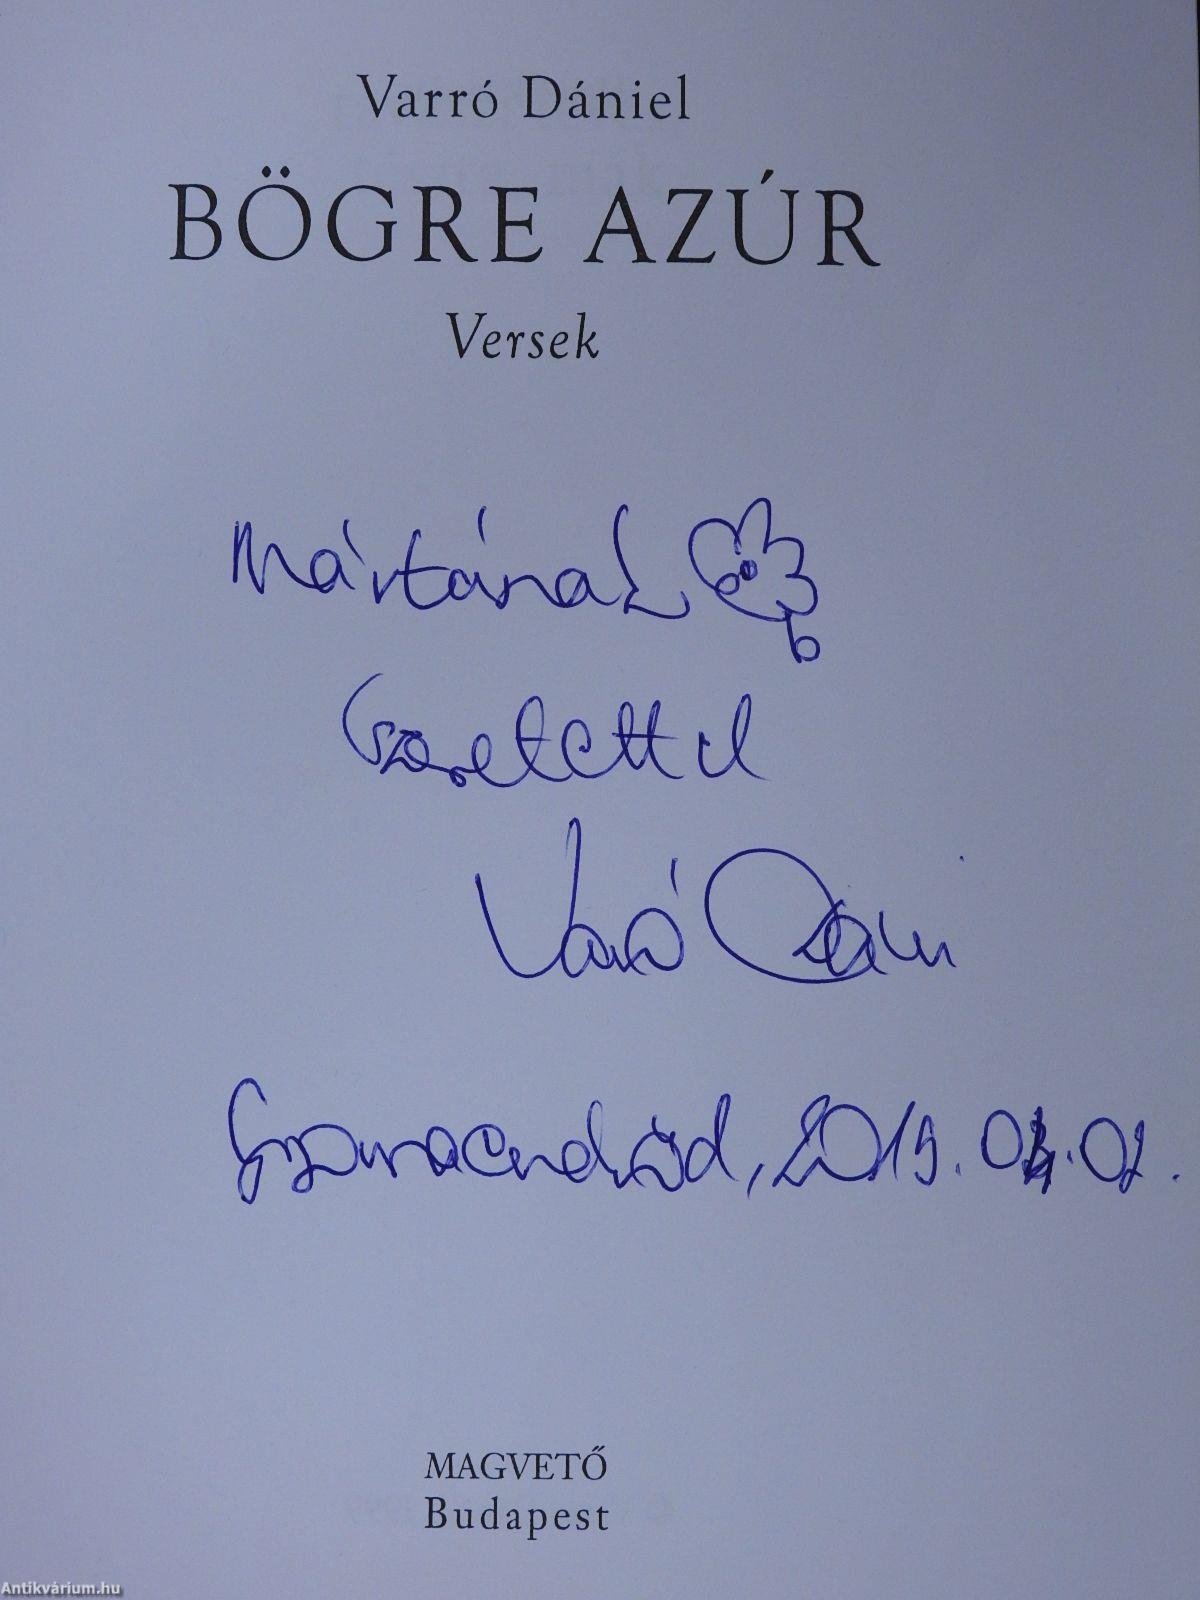 Varró Dániel
BÖGRE AZÚR
Versek
Mártának
szeretettel
Varró Dani
2019. 02.
MAGVETŐ
Budapest
Antikvárium.hu